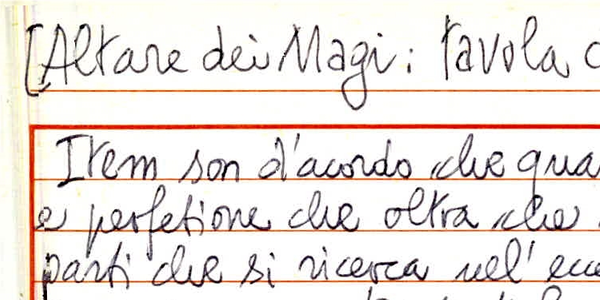 [Altare dei Magi: tavola
Item son d'acordo che
e perfetione che oltra che
parti che si ricerca nel'